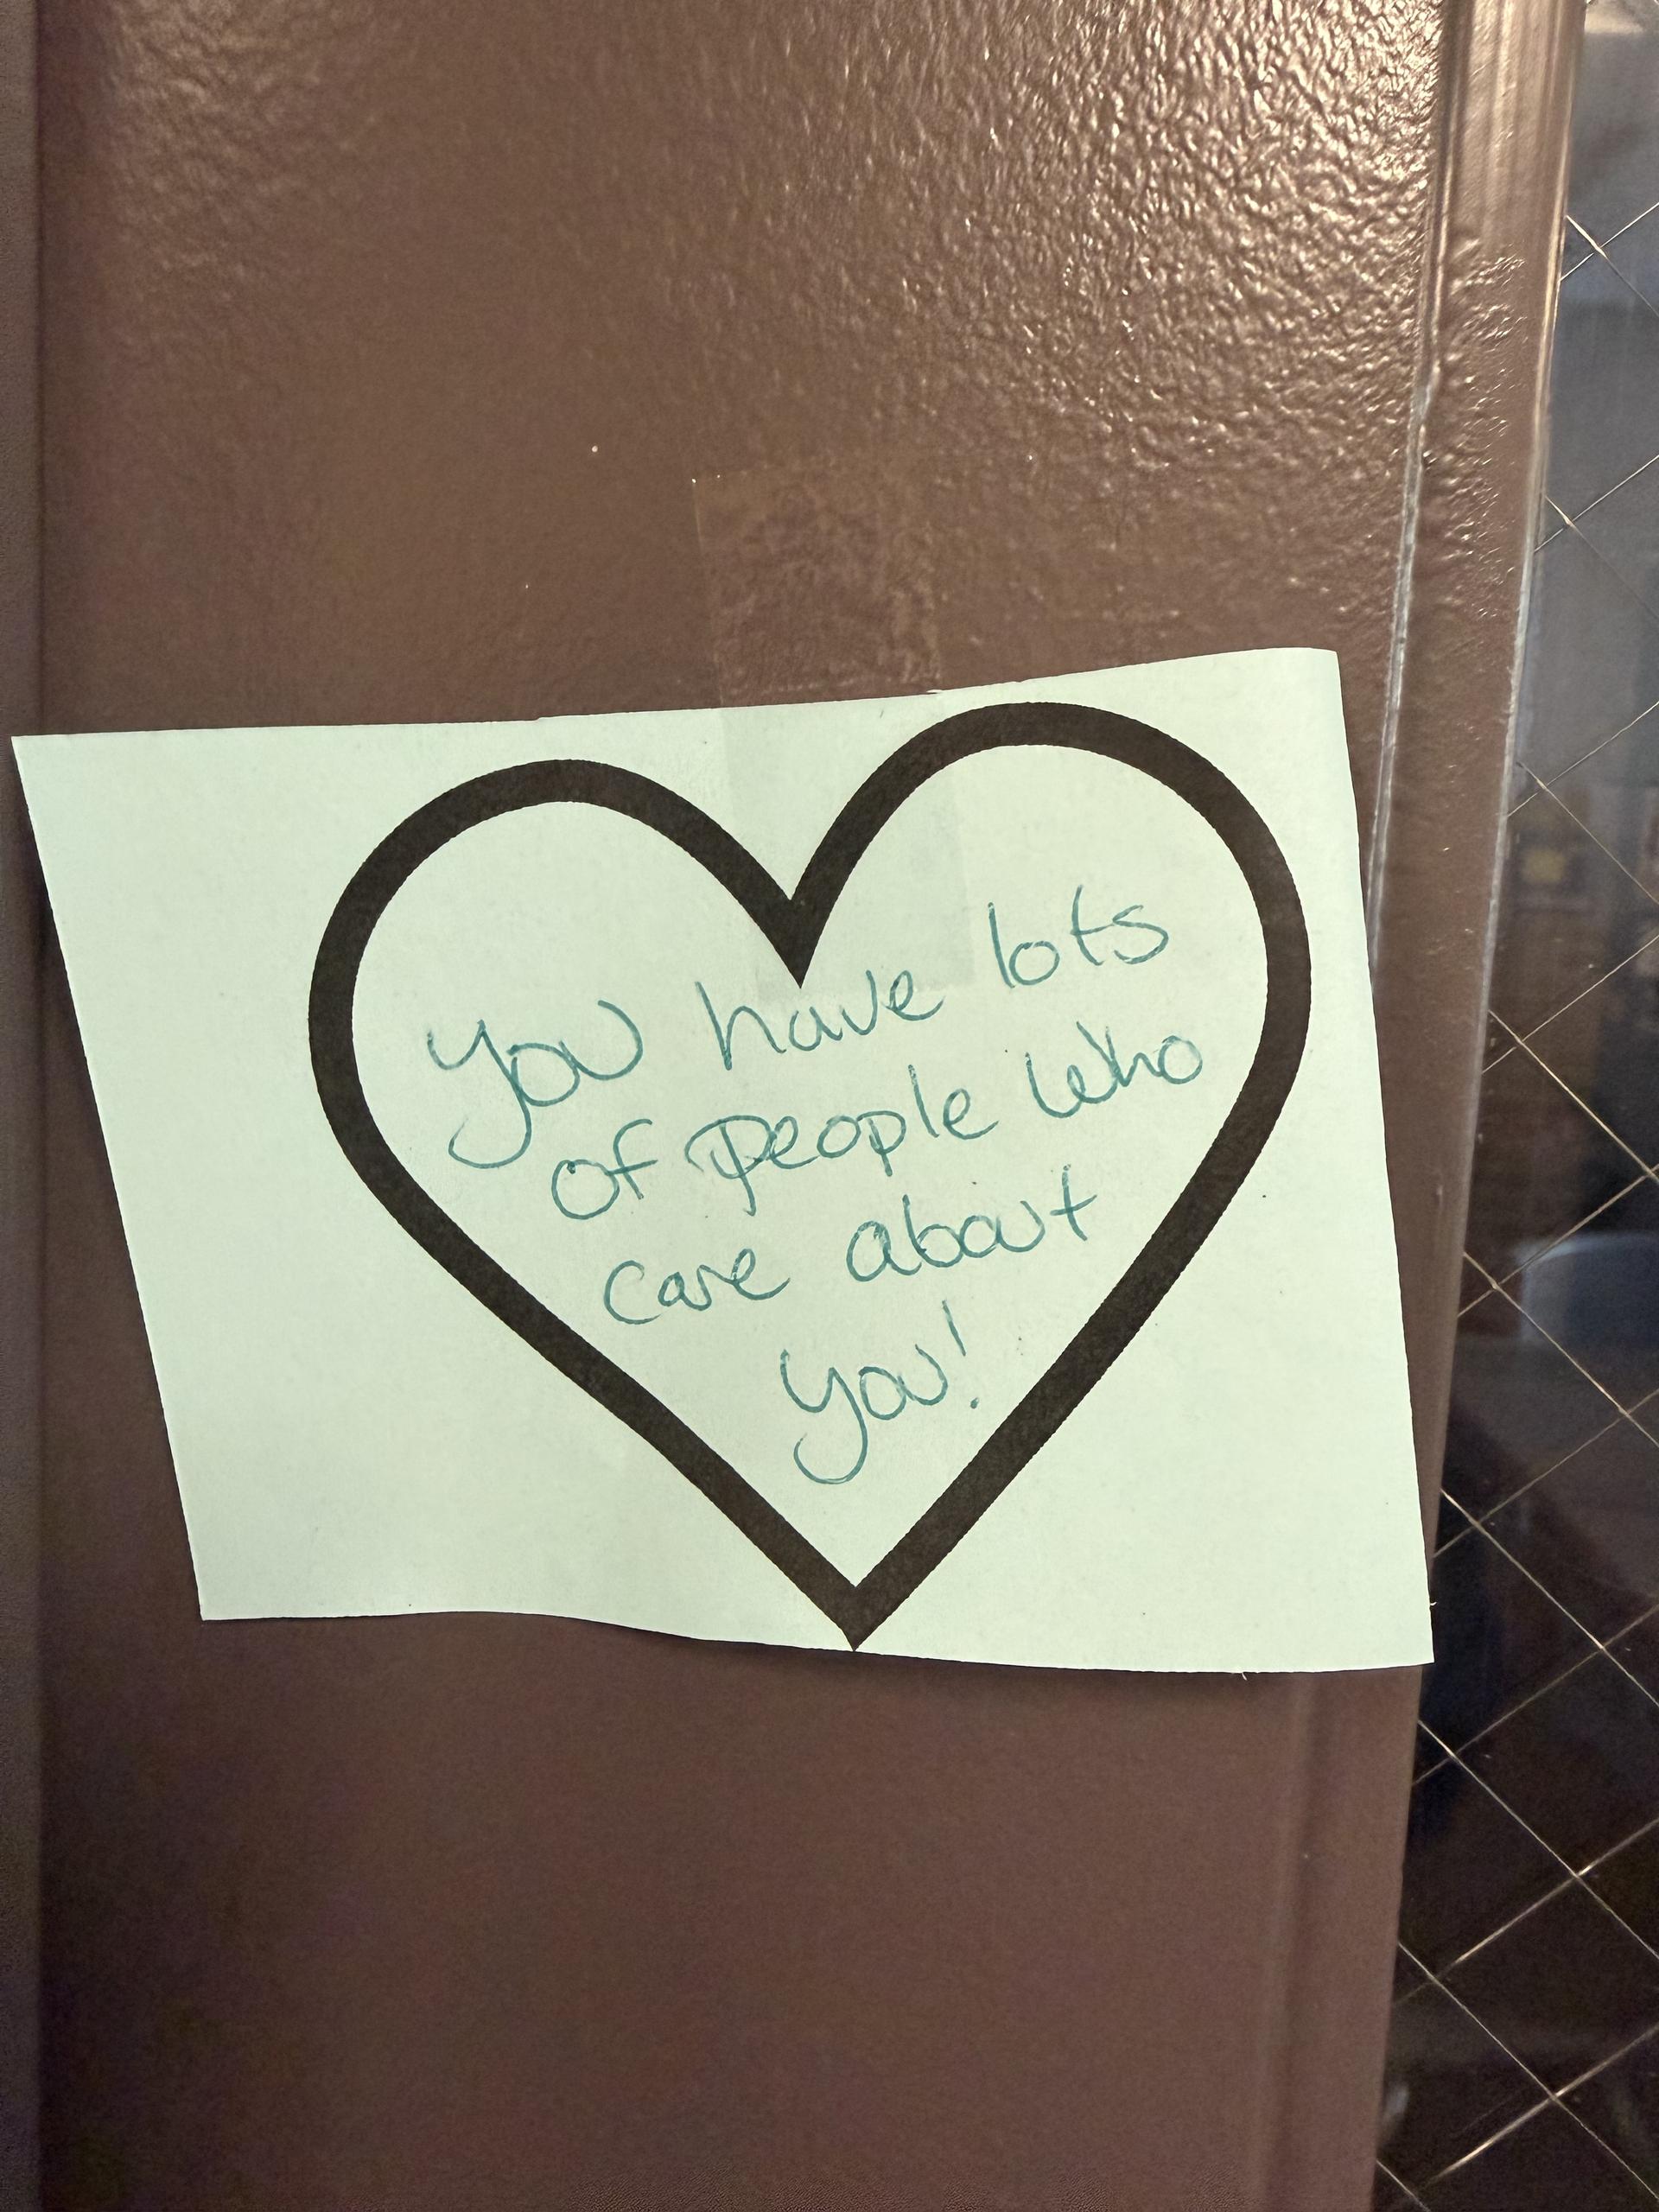 You have lots
of people who
care about
you!